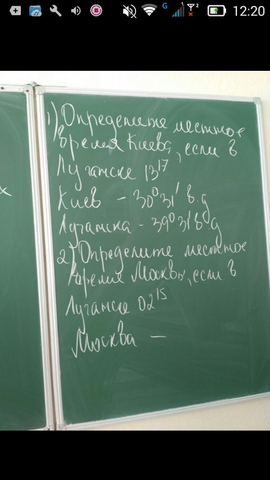 12:20
1) Определите местное
время Киева, если в
Луганске 13¹⁷
Киев - 30°31' в.д
Луганска - 39°31' в д
2) Определите местное
время Москвы, если в
Луганске 02¹⁵
Москва —